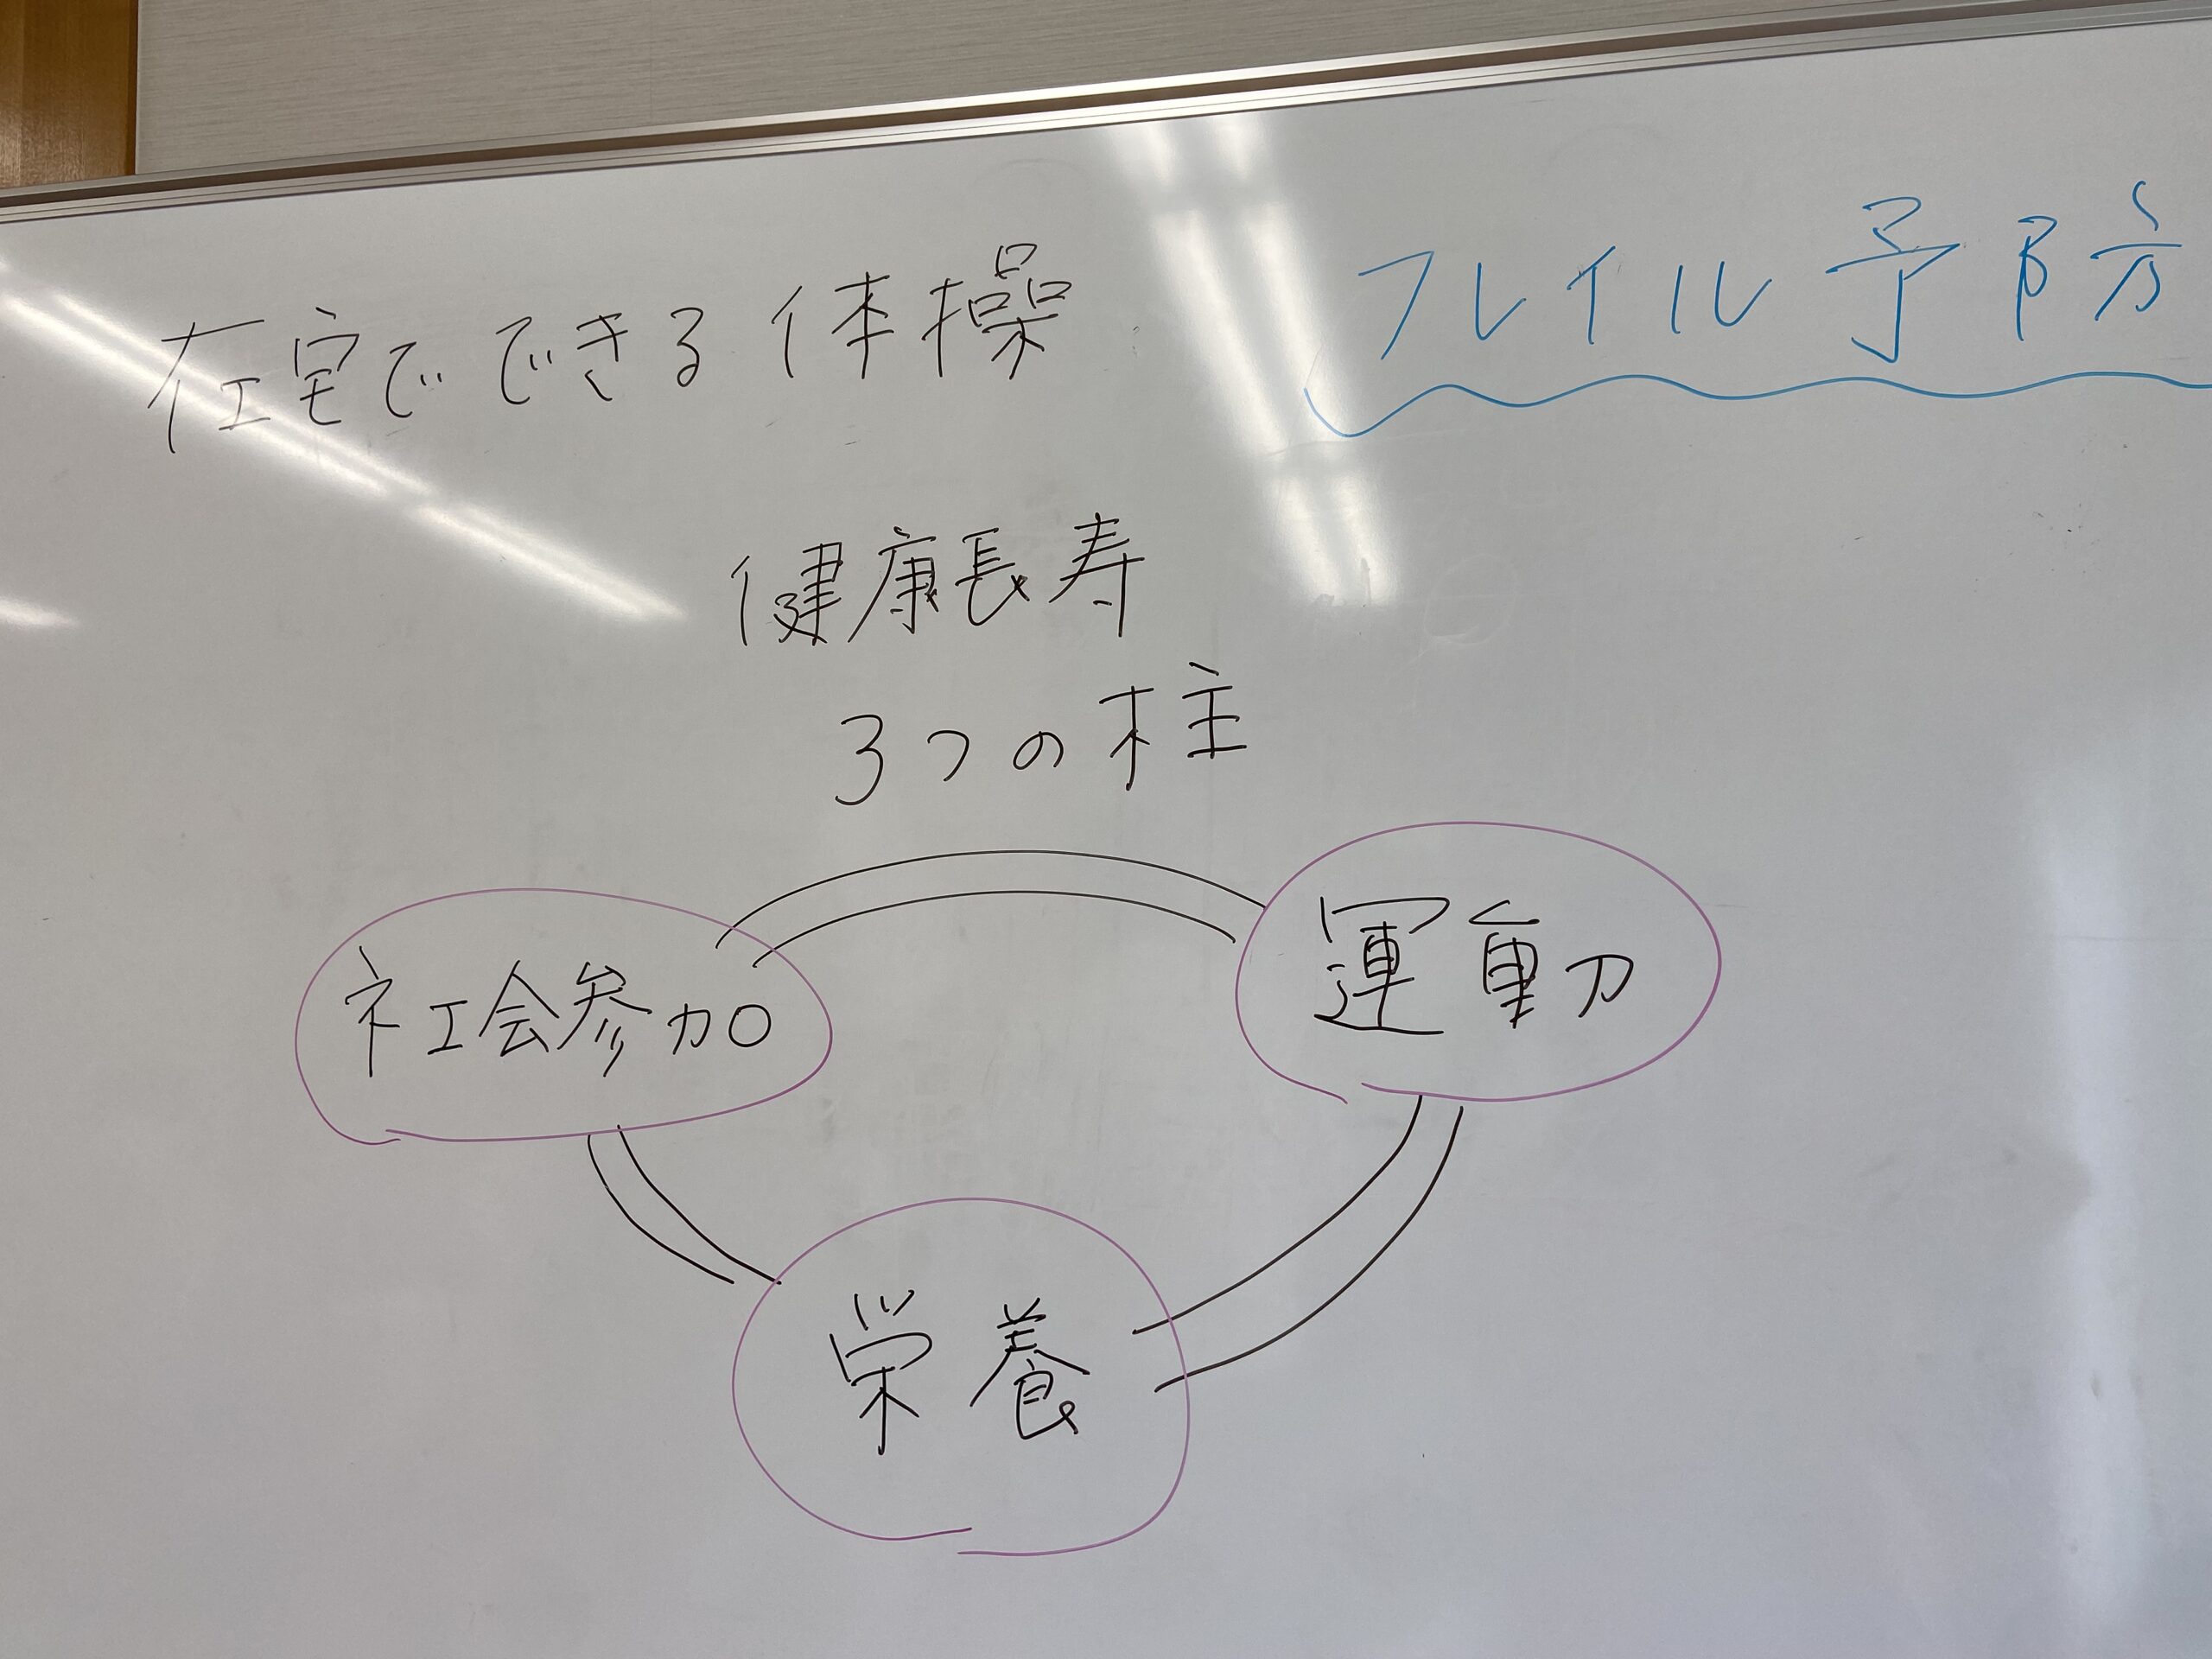 在宅でできる体操
フレイル予防
健康長寿
3つの柱
社会参加
運動
栄養